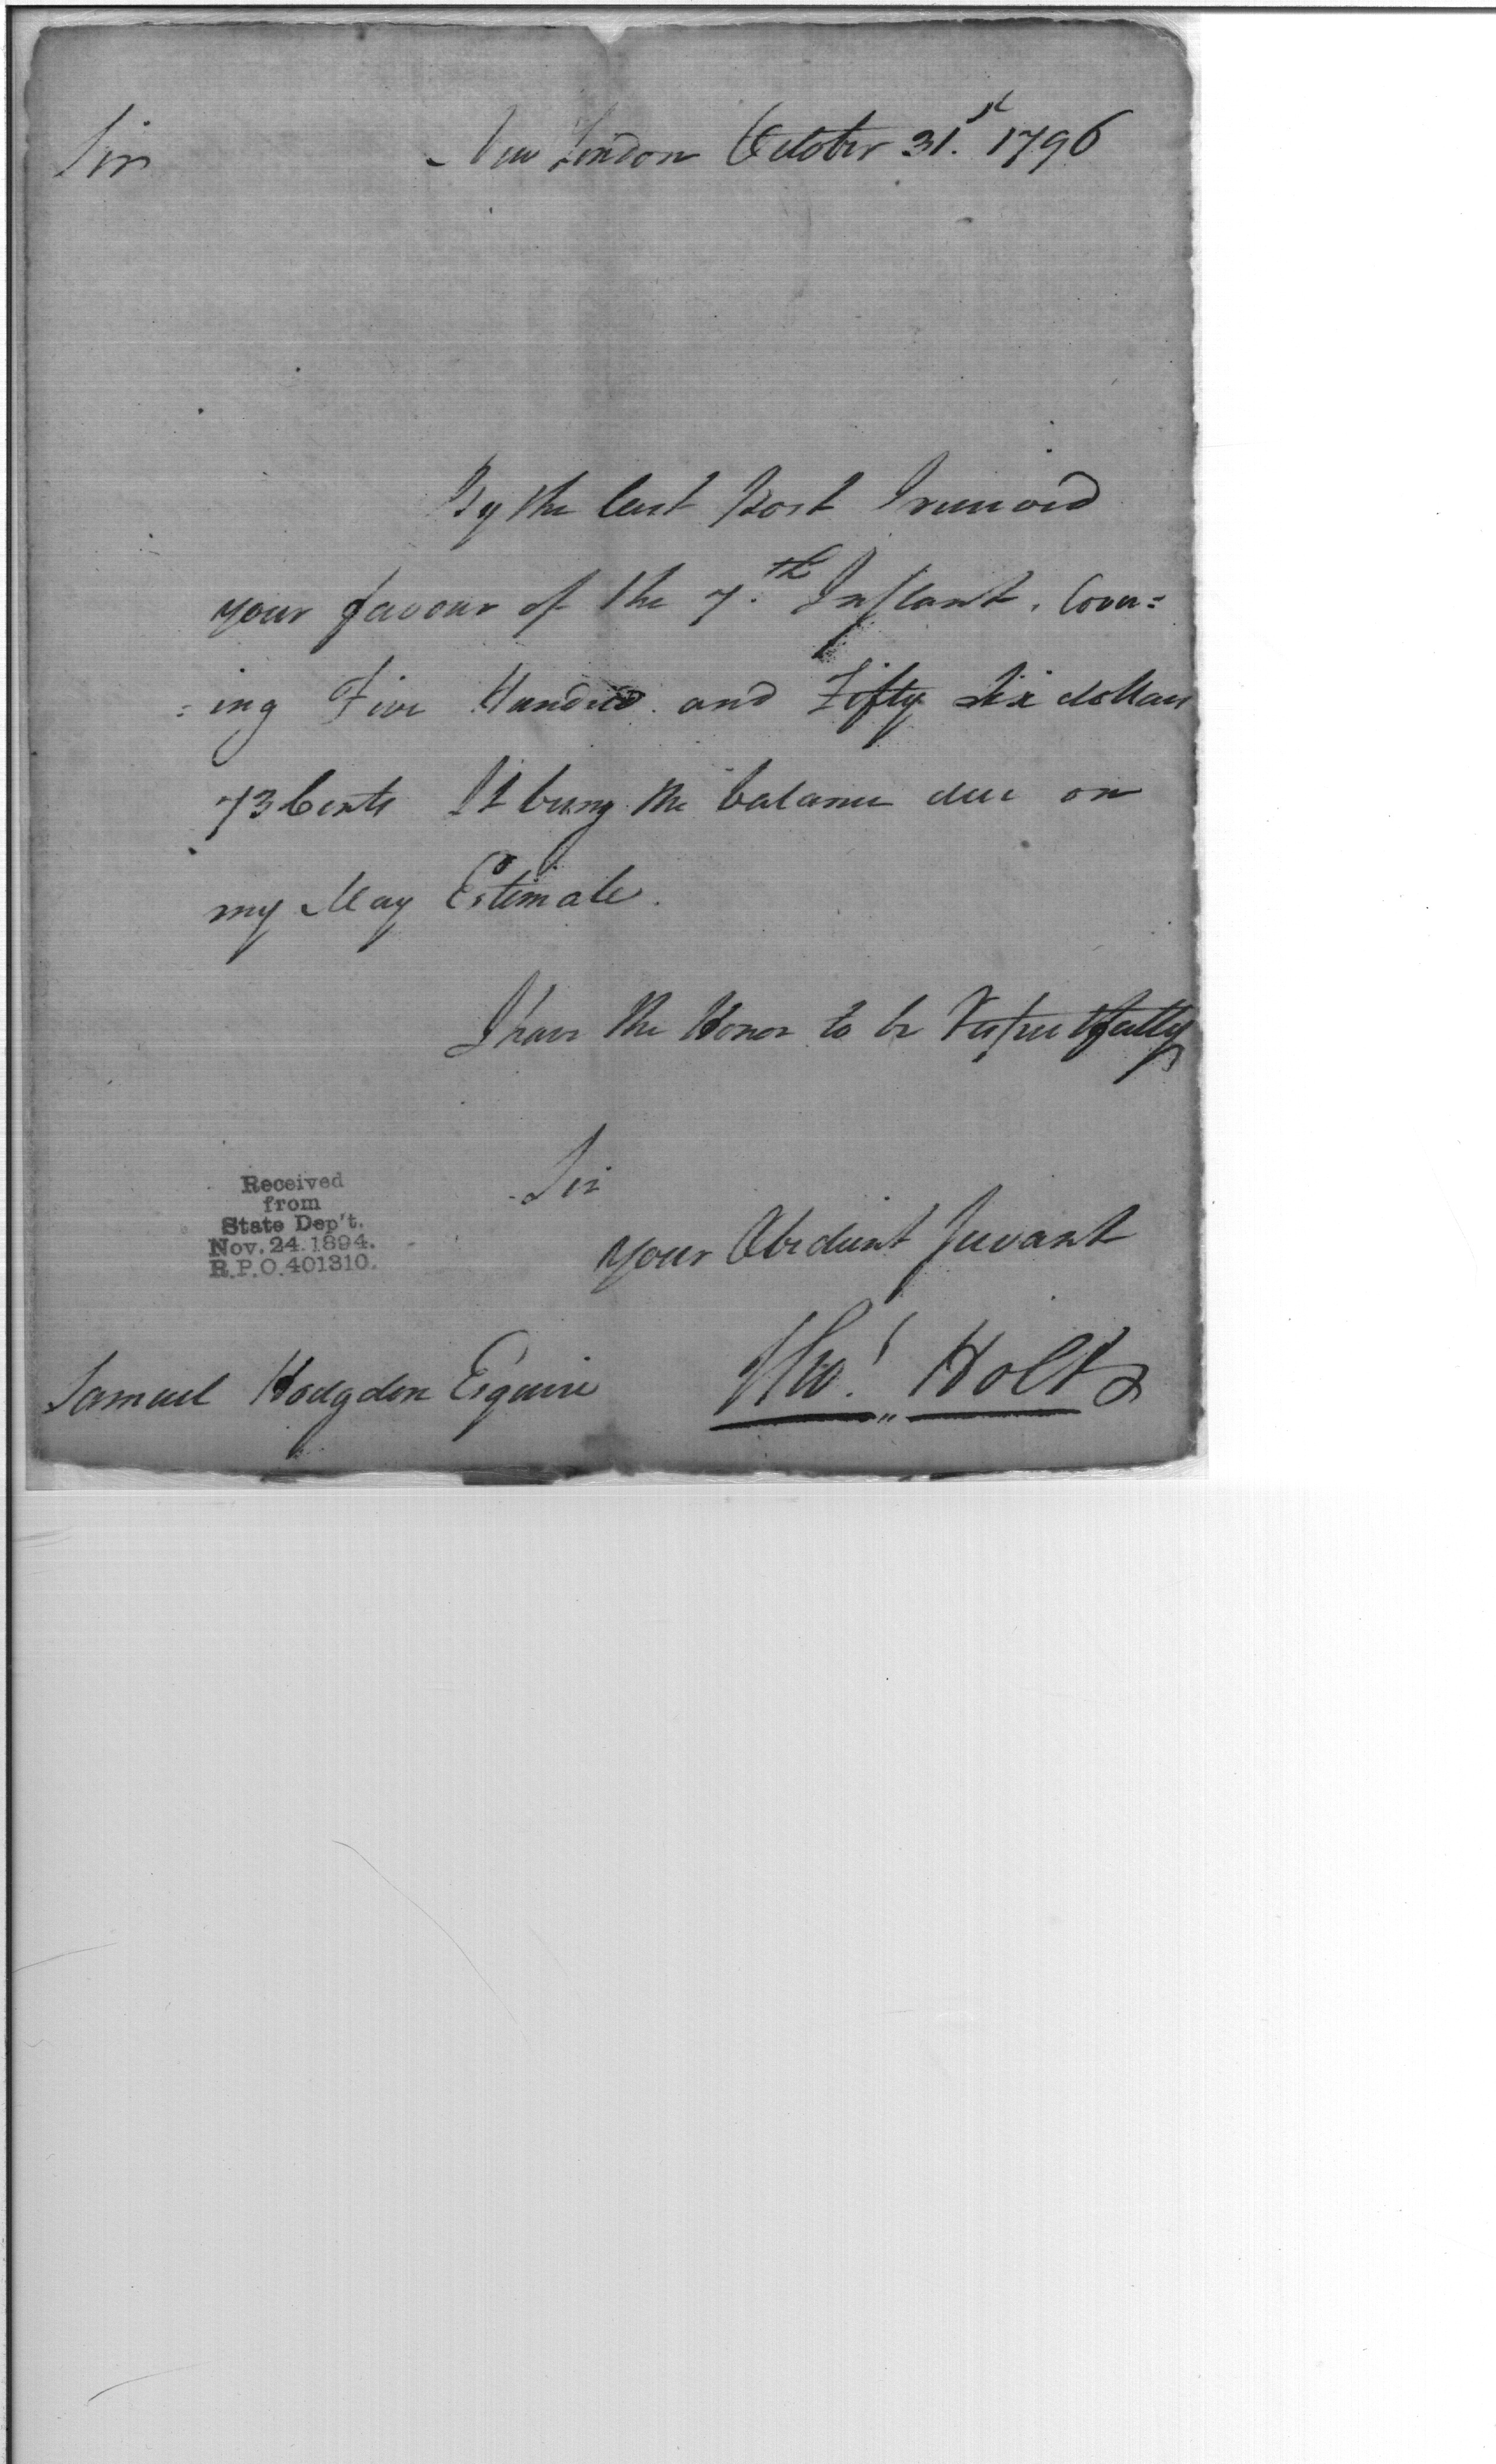 Sir
New London October 31.st 1796
By the last Post I received
your favour of the 7.th Instant, Cover=
=ing Five Hundred and Fifty Six dollars
73 Cents It being the balance due on
my May Estimate.
I have the Honor to be Respectfully
Sir
your Obedient Servant
Tho.s Holt
Samuel Hodgdon Esquire
Received
from
State Dep't.
Nov. 24 1894.
R.P.O. 401310.